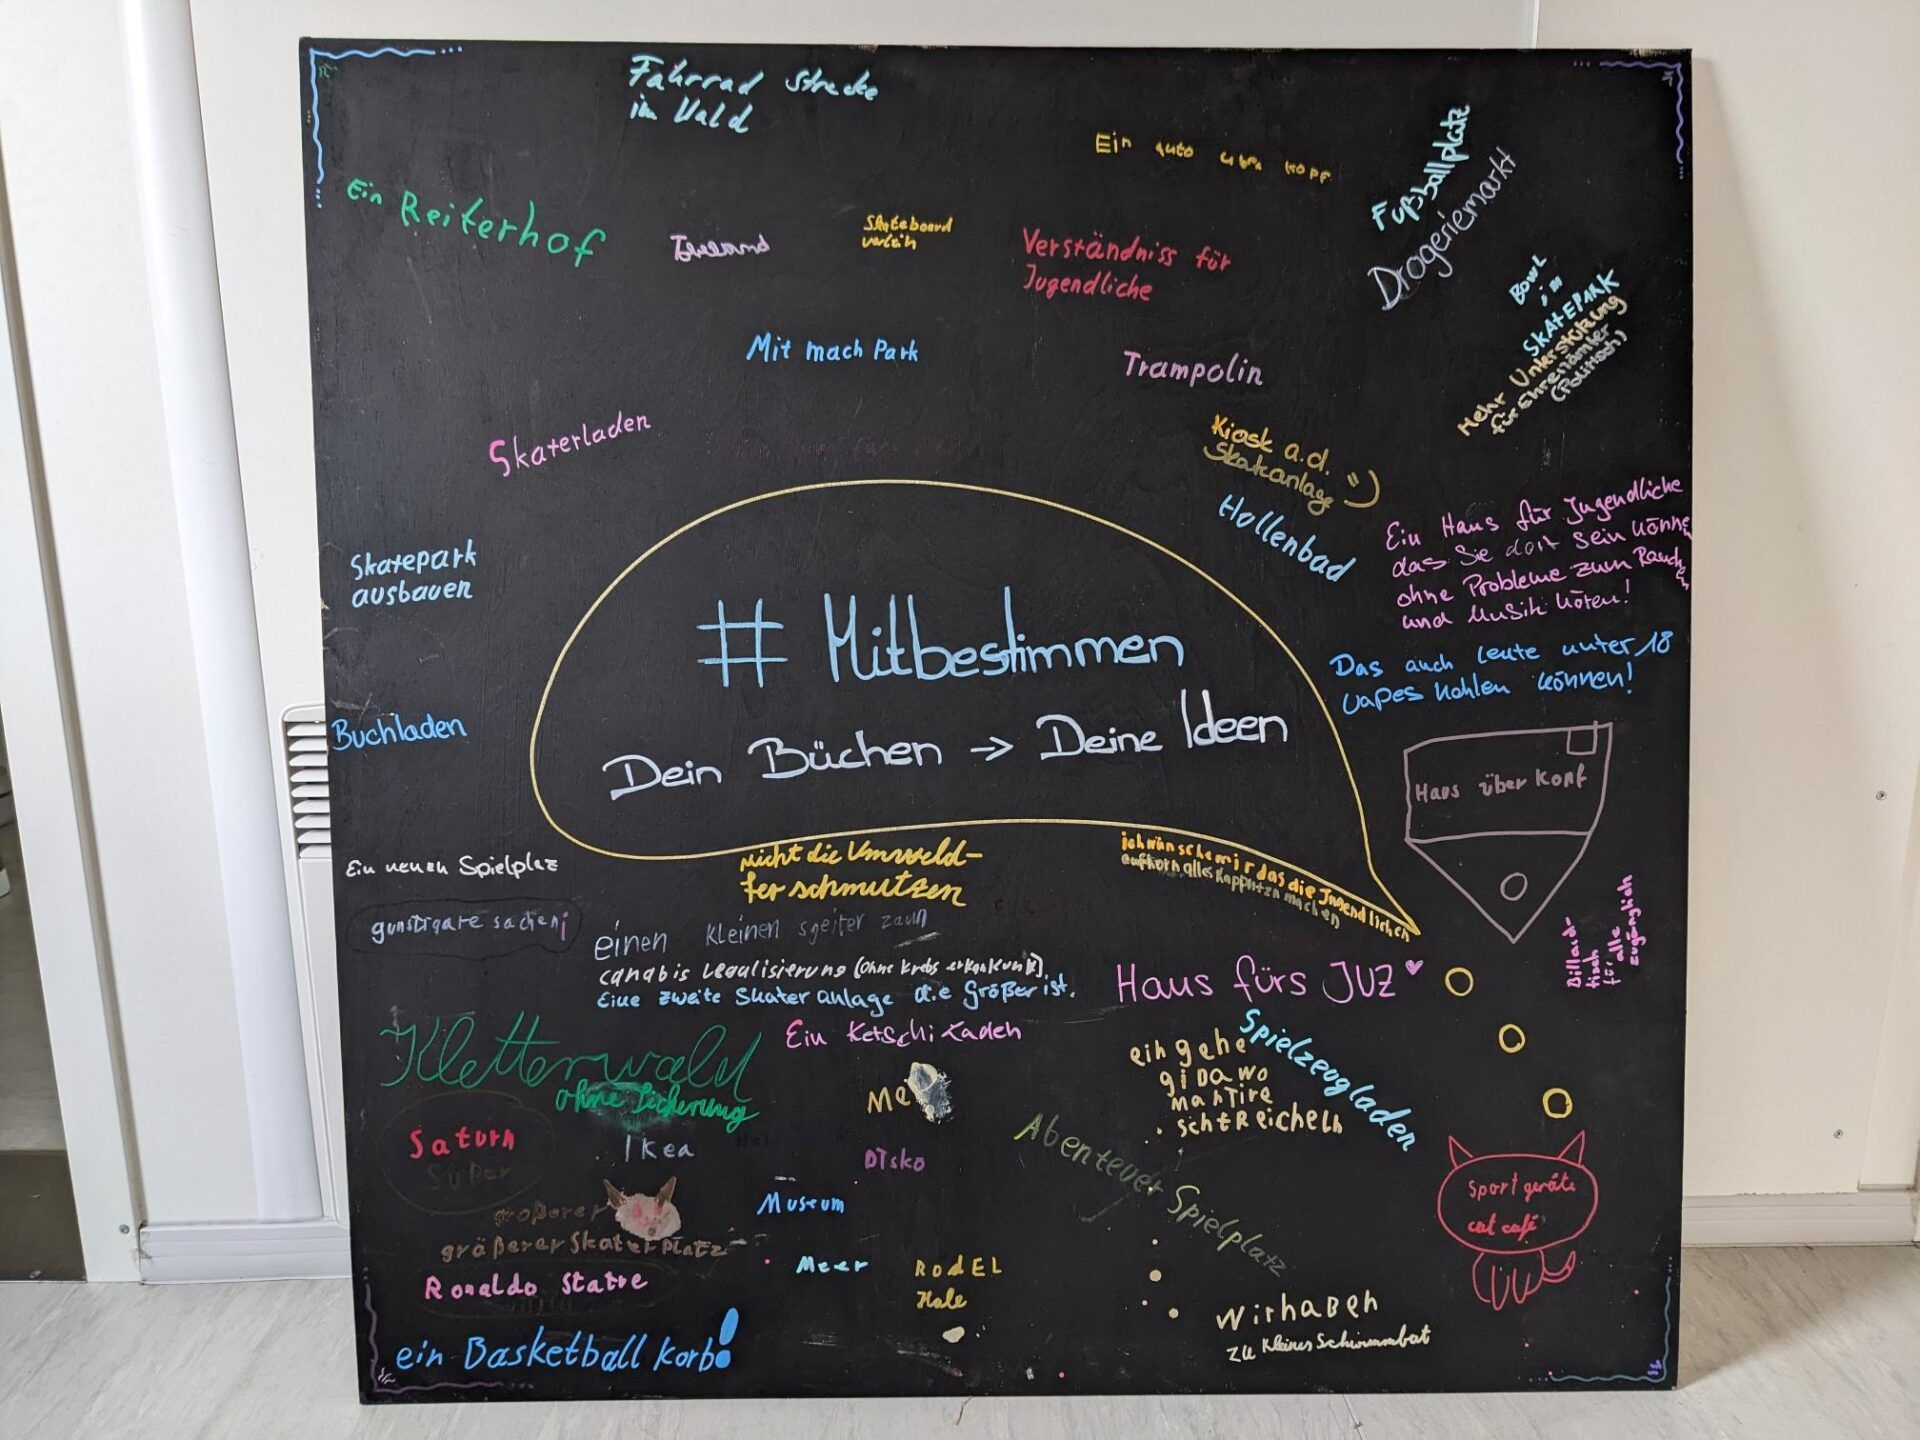 Fahrrad Strecke
im Wald
Ein auto über kopf
Fußballplatz
Drogeriemarkt
Ein Reiterhof
Skateboard
verleih
Verständniss für
Jugendliche
Bowl
in
SKAtEPARK
Mehr Unterstützung
für Ehrenämter
(Politisch)
Mit mach Park
Trampolin
Skaterladen
Kiosk a.d.
Skateanlage =)
Hallenbad
Ein Haus für Jugendliche
das Sie dort sein können
ohne Probleme zum Rauchen
und Musik hören!
Skatepark
ausbauen
# Mitbestimmen
Dein Büchen → Deine Ideen
Das auch leute unter 18
vapes hohlen können!
Buchladen
Haus über Kopf
Ein neuen Spielplaz
nicht die Umweld-
fer schmutzen
ich wünsche mir das die Jugendlichen
aufhörn alles kapputzn machen
gunstigare sachen¡
einen kleinen sgeiter zaun
canabis Legalisierung (ohne krebs erkrankung)
Eine zweite Skater anlage die Größer ist.
Haus fürs JUZ ♥
Billard-
tisch
für alle
zugänglich
Kletterwald
ohne Sicherung
Ein Ketschi Laden
Me
ein gehe
gi DA WO
man Tire
schtReicheln
Spielzeugladen
Saturn
Super
Ikea
Disko
Abenteuer Spielplatz
Museum
größerer
gräßerer Skaterplatz
Sport geräte
cat café
Ronaldo Statue
Meer
RodEL
Hale
WirhaBen
zu kleines Schwimmbat
ein Basketball korb!